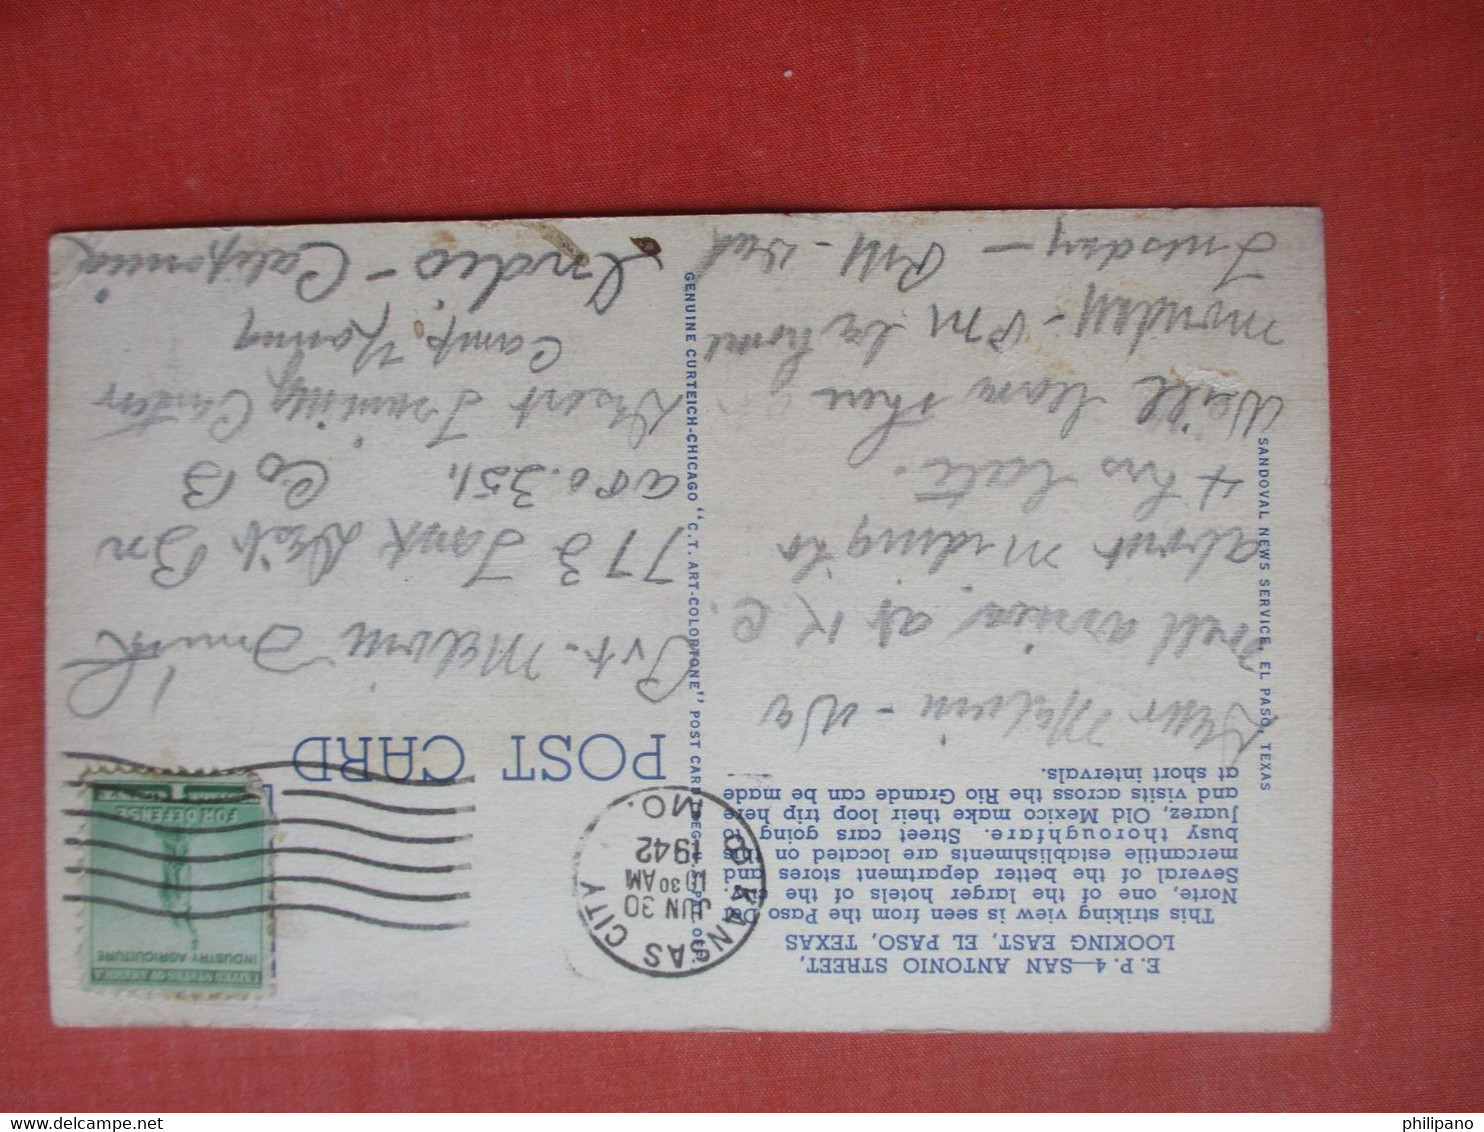 E. P. 4—SAN ANTONIO STREET,
LOOKING EAST, EL PASO, TEXAS
This striking view is seen from the Paso Del
Norte, one of the larger hotels of the city.
Several of the better department stores and
mercantile establishments are located on this
busy thoroughfare. Street cars going to
Juarez, Old Mexico make their loop trip here
and visits across the Rio Grande can be made
at short intervals.
Dear Melvin - We
well arrived at K C.
about
4 hrs late.
Will leave then
Monday - PM
Tuesday - PM -
SANDOVAL NEWS SERVICE, EL PASO, TEXAS
GENUINE CURTEICH-CHICAGO "C.T. ART-COLORTONE" POST CARD (REG. U.S. PAT. OFF.)
POST CARD
KANSAS CITY
JUN 30
10 30 AM
1942
MO.
UNITED STATES OF AMERICA
INDUSTRY AGRICULTURE
FOR DEFENSE
Pvt. Melvin
773 Tank Dest. Bn
APO. 351, Co B
Desert Training Center
Camp Young
Indio - California
philipano